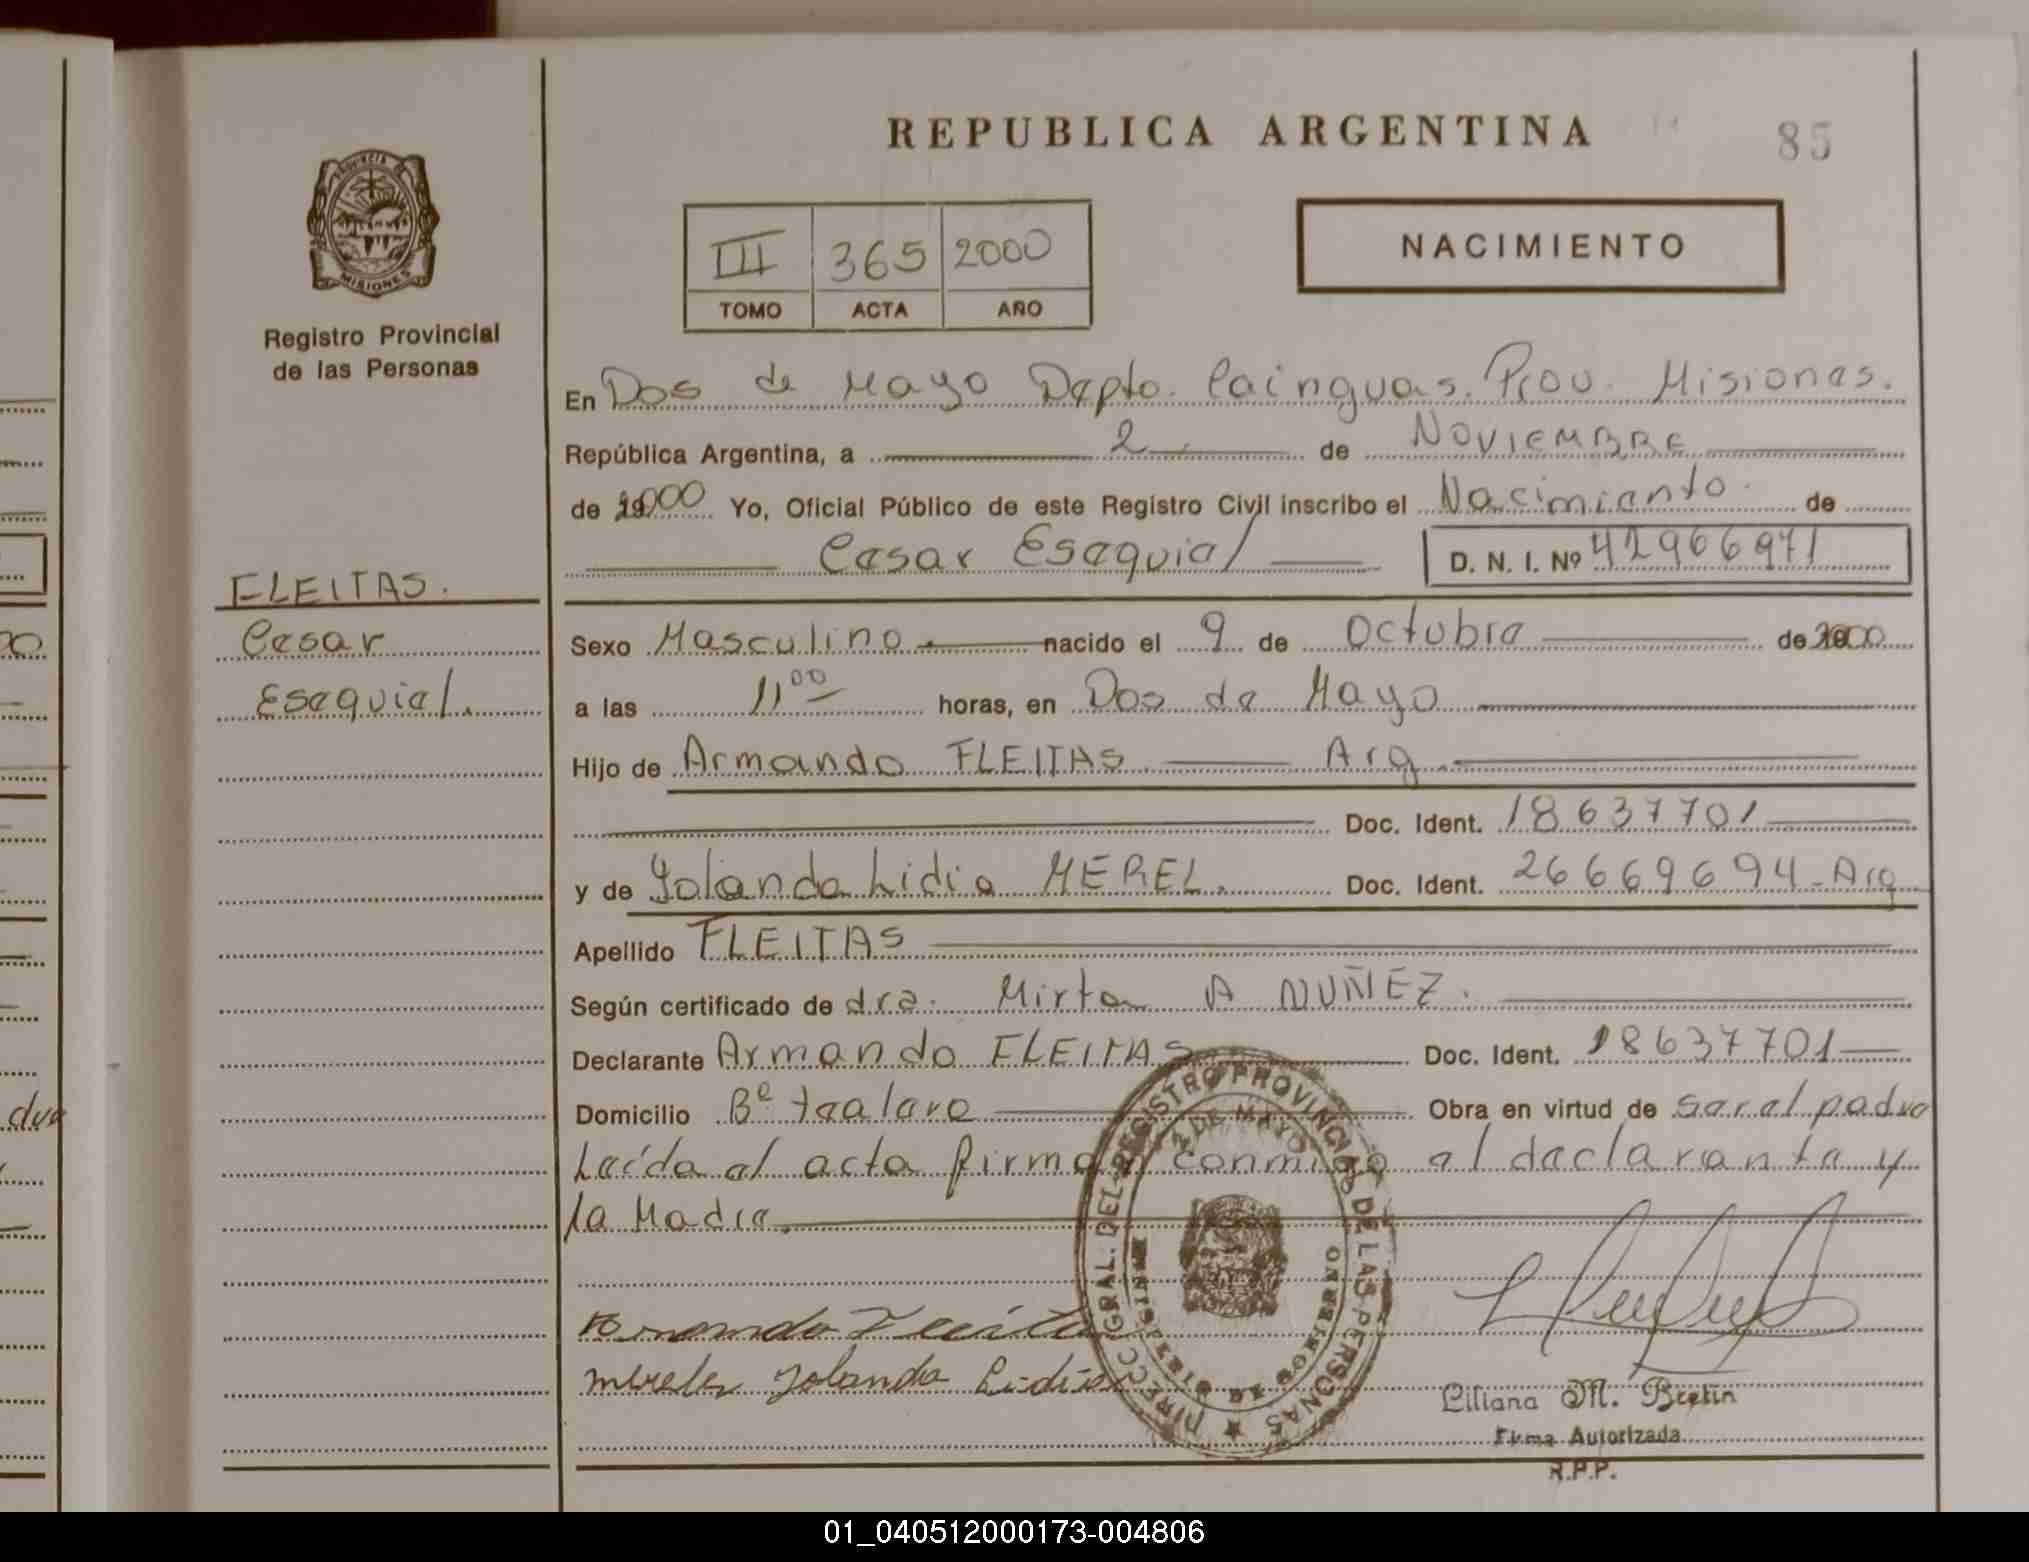 REPUBLICA ARGENTINA
85
PROVINCIA DE
MISIONES
Registro Provincial
de las Personas
III 365 2000
TOMO ACTA AÑO
NACIMIENTO
En Dos de Mayo Depto. Cainguas. Prov. Misiones.
República Argentina, a 2 de NOVIEMBRE
de 2000 Yo, Oficial Público de este Registro Civil inscribo el Nacimiento. de
Cesar Esequiel D. N. I. Nº 42966971
FLEITAS.
Cesar
Esequiel.
Sexo Masculino. nacido el 9 de Octubre de 2000
a las 11 00 horas, en Dos de Mayo
Hijo de Armando FLEITAS Arg.
Doc. Ident. 18637701
y de Yolanda Lidia MEREL. Doc. Ident. 26669694 - Arg
Apellido FLEITAS
Según certificado de dra. Mirta A NUÑEZ.
Declarante Armando FLEITAS Doc. Ident. 18637701
Domicilio Bº Obra en virtud de ser el padre
Leída el acta firman conmigo el declarante y
la Madre.
DIRECC. GRAL. DEL REGISTRO PROVINCIAL DE LAS PERSONAS
2 DE MAYO
Merele Yolanda Lidia
Liliana M. Bretin
Firma Autorizada
R.P.P.
dre
01_040512000173-004806